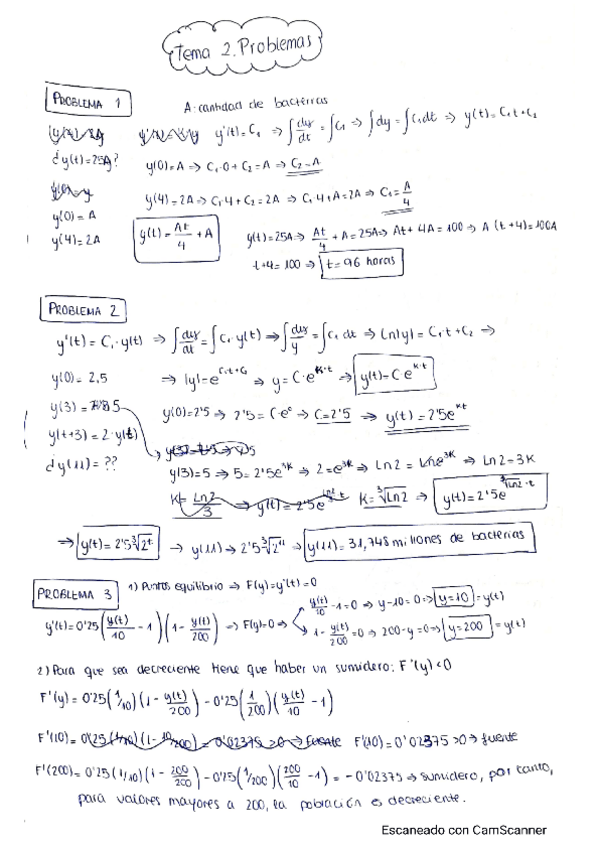 Tema 2. Problemas
PROBLEMA 1
A: cantidad de bacterias
y'(t) = C₁ ⇒ ∫dy/dt = ∫C₁ ⇒ ∫dy = ∫C₁dt ⇒ y(t) = C₁t + C₂
¿y(t) = 25A?
y(0) = A ⇒ C₁·0 + C₂ = A ⇒ C₂ = A
y(0) = A
y(4) = 2A ⇒ C₁·4 + C₂ = 2A ⇒ C₁4 + A = 2A ⇒ C₁ = A/4
y(4) = 2A
y(t) = At/4 + A
y(t) = 25A ⇒ At/4 + A = 25A ⇒ At + 4A = 100 ⇒ A(t+4) = 100A
t+4 = 100 ⇒ t = 96 horas
PROBLEMA 2
y'(t) = C₁·y(t) ⇒ ∫dy/dt = ∫C₁·y(t) ⇒ ∫dy/y = ∫C₁dt ⇒ Ln|y| = C₁t + C₂ ⇒
y(0) = 2,5
⇒ |y| = e^(C₁·t+C₂) ⇒ y = C·e^(K·t) ⇒ y(t) = C·e^(K·t)
y(3) = 5
y(0) = 2'5 ⇒ 2'5 = C·e⁰ ⇒ C = 2'5 ⇒ y(t) = 2'5e^(Kt)
y(t+3) = 2·y(t)
¿y(11) = ??
y(3) = 5 ⇒ 5 = 2'5e^(3K) ⇒ 2 = e^(3K) ⇒ Ln2 = Lne^(3K) ⇒ Ln2 = 3K
K = Ln2/3 ⇒ y(t) = 2'5e^(ln2/3 t) K = ∛Ln2 ⇒ y(t) = 2'5e^(∛ln2·t)
⇒ y(t) = 2'5∛2^t ⇒ y(11) ⇒ 2'5∛2^11 ⇒ y(11) = 31,748 millones de bacterias
PROBLEMA 3
1) Puntos equilibrio ⇒ F(y) = y'(t) = 0
y'(t) = 0'25(y(t)/10 - 1)(1 - y(t)/200) ⇒ F(y) = 0 ⇒
y(t)/10 - 1 = 0 ⇒ y - 10 = 0 ⇒ y = 10 = y(t)
1 - y(t)/200 = 0 ⇒ 200 - y = 0 ⇒ y = 200 = y(t)
2) Para que sea decreciente tiene que haber un sumidero: F'(y) < 0
F'(y) = 0'25(1/10)(1 - y(t)/200) - 0'25(1/200)(y(t)/10 - 1)
F'(10) = 0'25(1/10)(1 - 10/200) = 0'02375 > 0 ⇒ fuente F'(10) = 0'02375 > 0 ⇒ fuente
F'(200) = 0'25(1/10)(1 - 200/200) - 0'25(1/200)(200/10 - 1) = -0'02375 ⇒ sumidero, por tanto,
para valores mayores a 200, la población es decreciente.
Escaneado con CamScanner